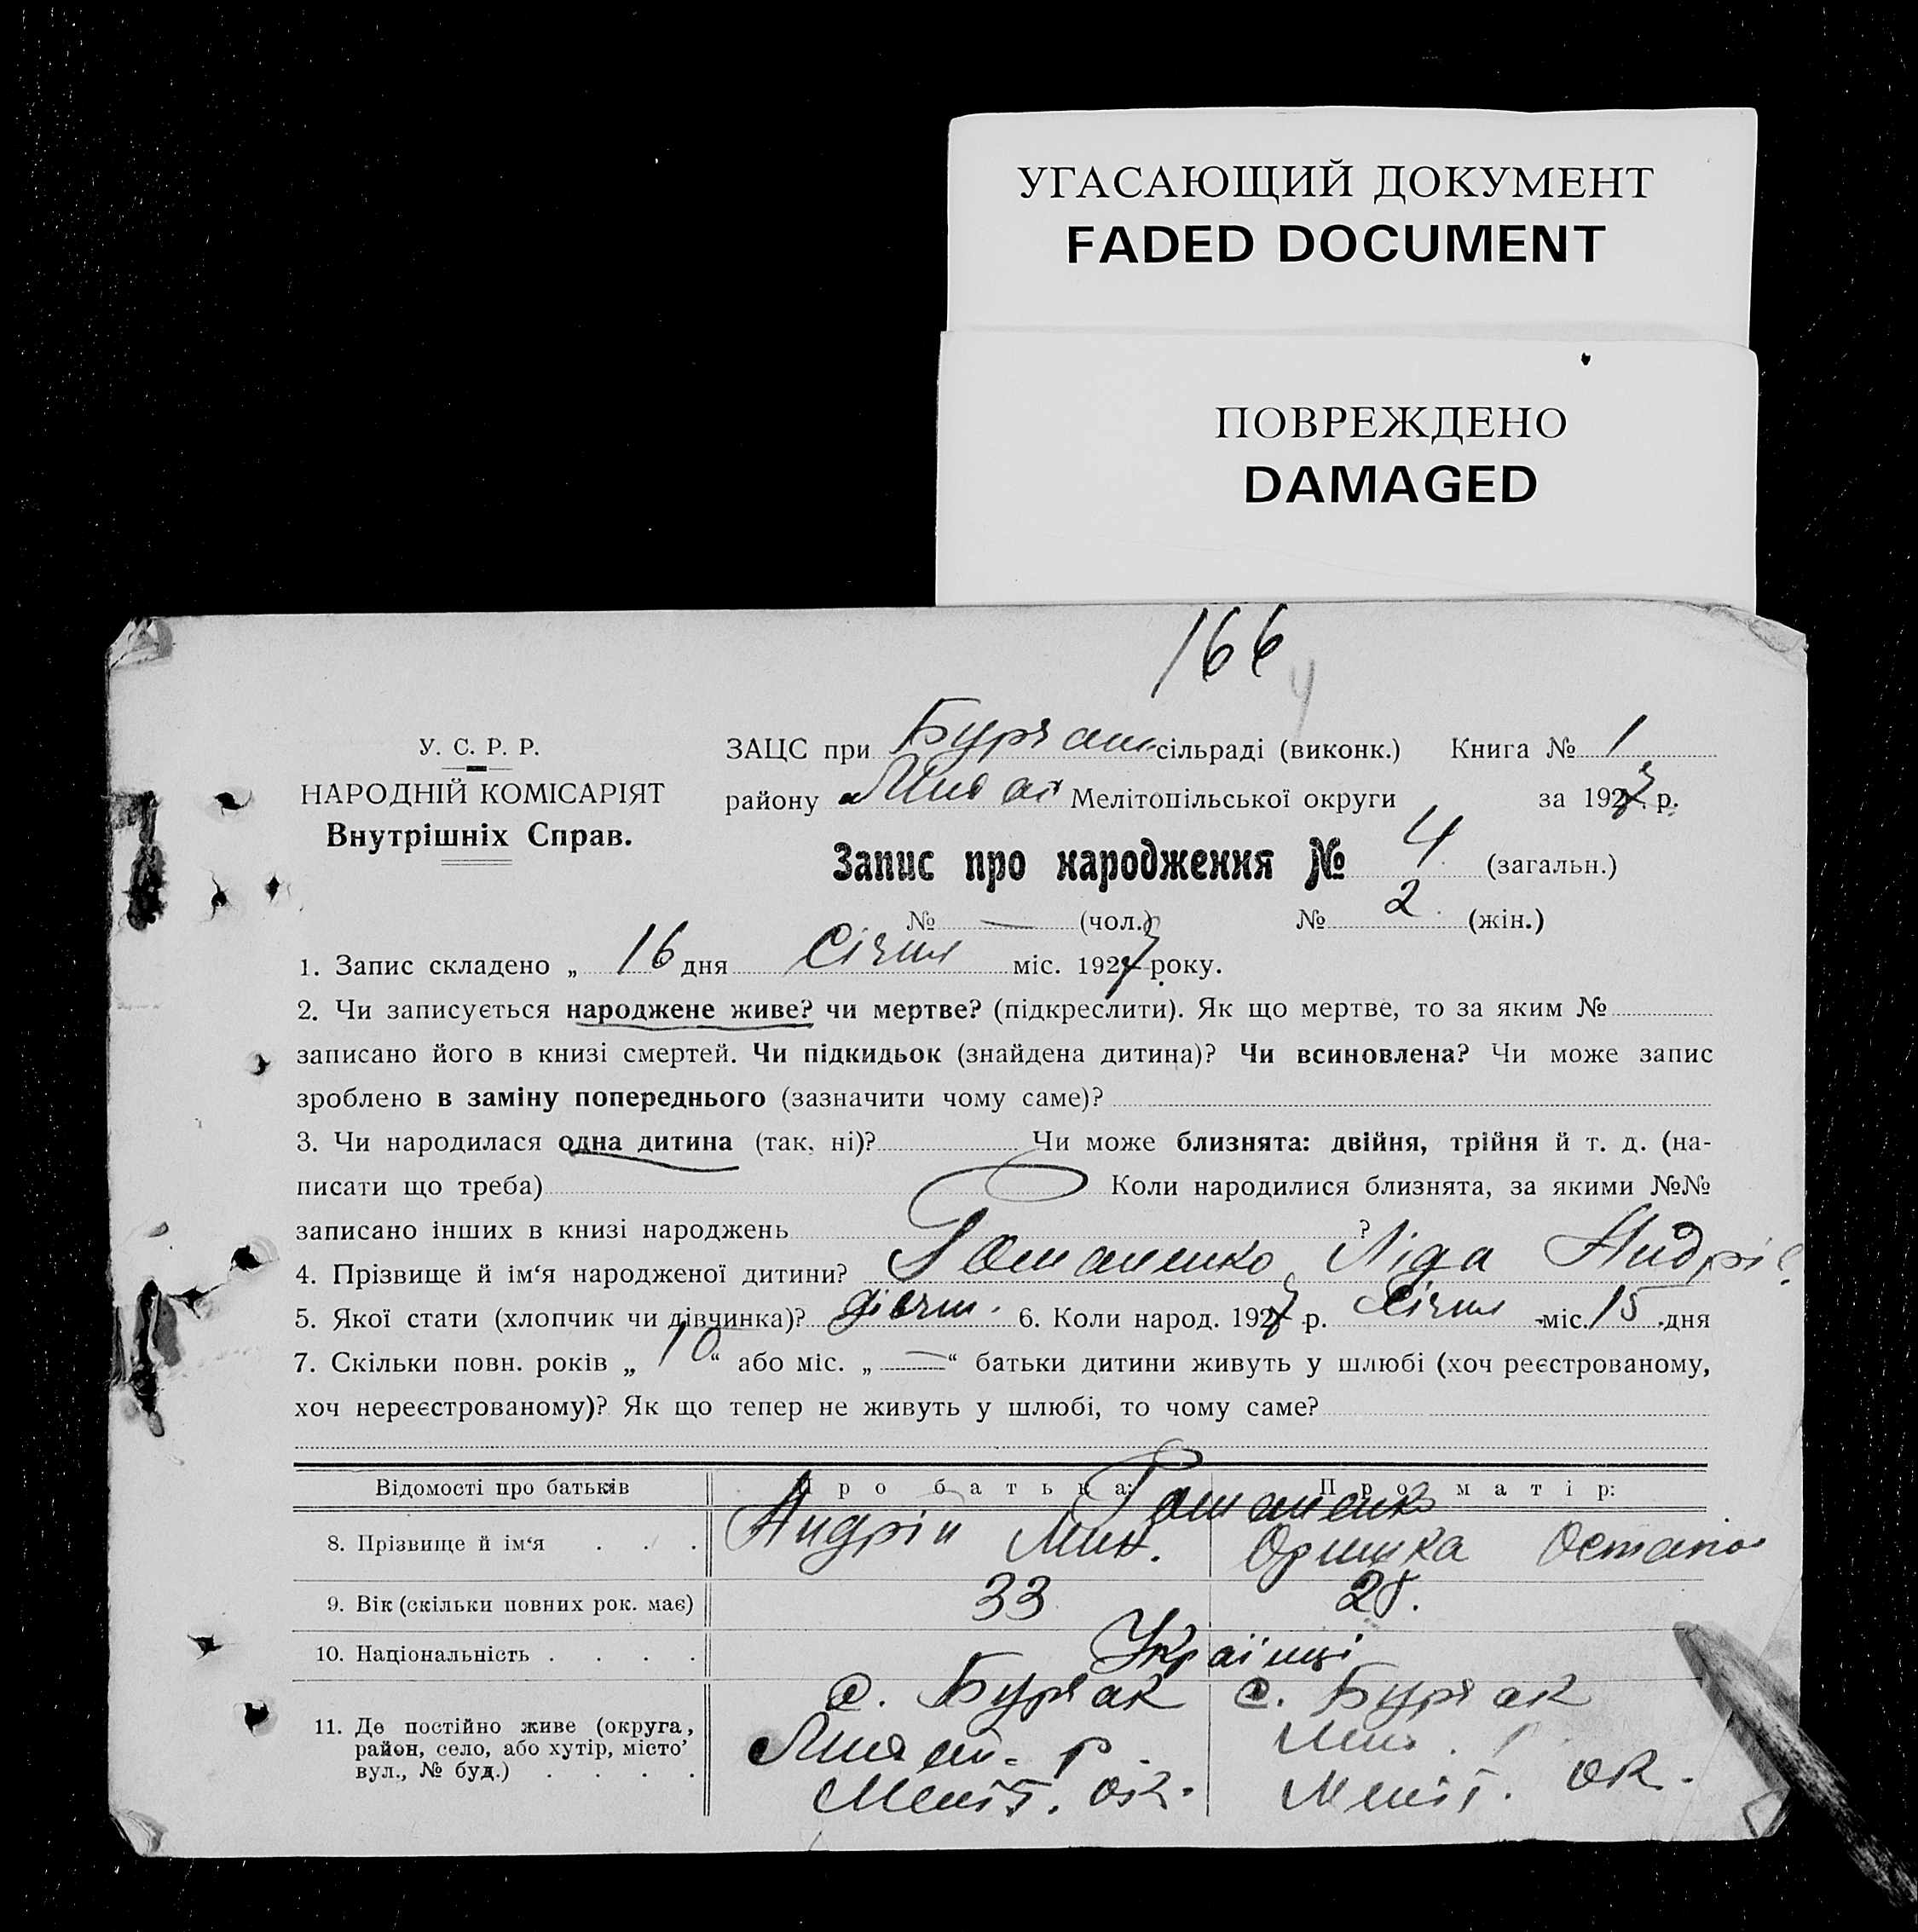 УГАСАЮЩИЙ ДОКУМЕНТ
FADED DOCUMENT
ПОВРЕЖДЕНО
DAMAGED
166
4
У. С. Р. Р.
НАРОДНІЙ КОМІСАРІЯТ
Внутрішніх Справ.
ЗАЦС при Бурчак сільраді (виконк.) Книга № 1
району Мелітопільської округи за 1927 р.
Запис про народження № 4 (загальн.)
№ — (чол.) № 2 (жін.)
1. Запис складено „ 16 дня Січня міс. 1927 року.
2. Чи записується народжене живе? чи мертве? (підкреслити). Як що мертве, то за яким №
записано його в книзі смертей. Чи підкидьок (знайдена дитина)? Чи всиновлена? Чи може запис
зроблено в заміну попереднього (зазначити чому саме)?
3. Чи народилася одна дитина (так, ні)? Чи може близнята: двійня, трійня й т. д. (на-
писати що треба) Коли народилися близнята, за якими №№
записано інших в книзі народжень ?
4. Прізвище й ім‘я народженої дитини? Ліда Андрів
5. Якої стати (хлопчик чи дівчинка)? дівчи. 6. Коли народ. 1927 р. Січня міс. 15 дня
7. Скільки повн. років „ 10 “ або міс. „ — “ батьки дитини живуть у шлюбі (хоч реєстрованому,
хоч нереєстрованому)? Як що тепер не живуть у шлюбі, то чому саме?
Відомості про батьків Про батька: Про матір:
8. Прізвище й ім‘я . . . Андрій Мик. Оришка Остапов
9. Вік (скільки повних рок. має) 33 28.
10. Національність . . . . Українці
11. Де постійно живе (округа,
район, село, або хутір, місто’
вул., № буд.) . . . .
с. Бурчак с. Бурчак
р.
Меліт. ок. Меліт. ок.